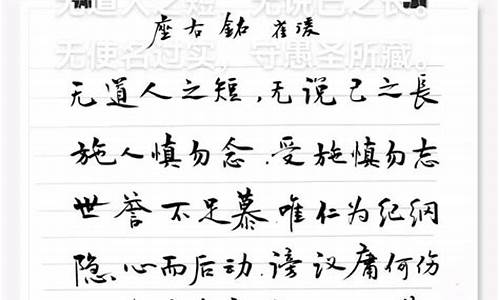 无道人之短，无说己之长。
座右銘 崔瑗
无使名过实，守愚圣所藏。
无道人之短，无说己之長
施人慎勿念，受施慎勿忘
世誉不足慕，唯仁为纪綱
隐心而后动，谤议庸何伤